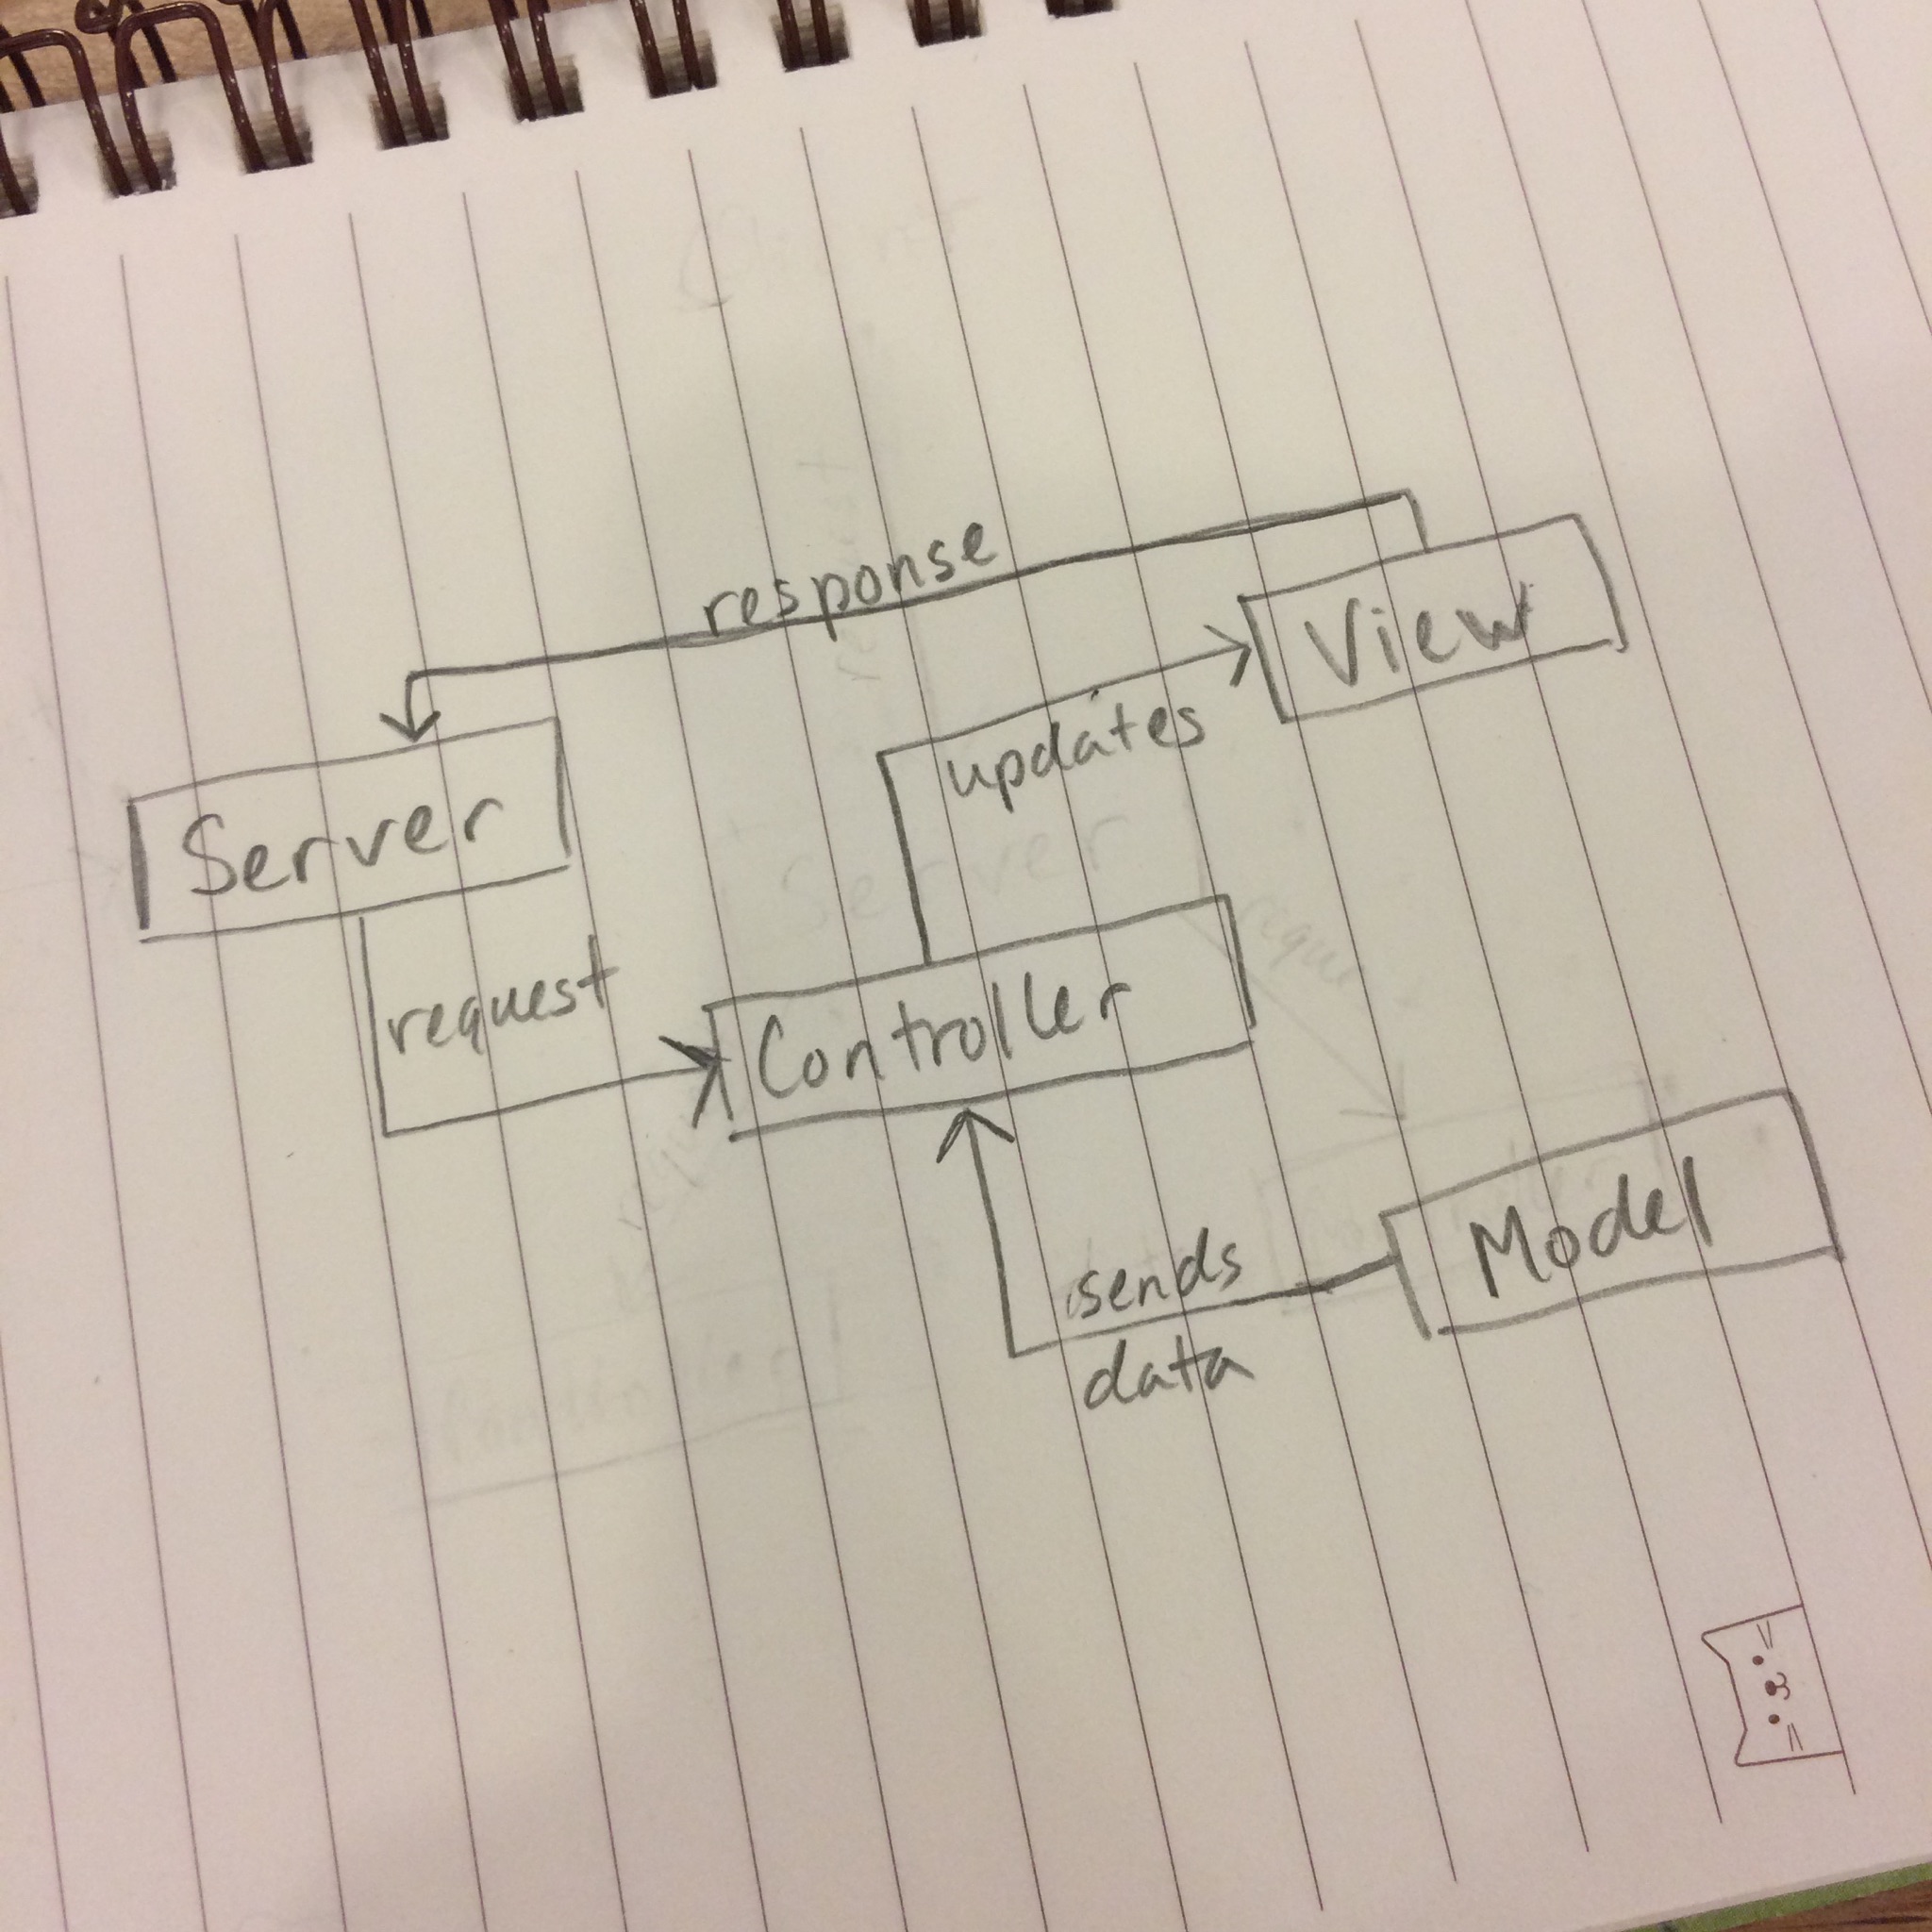 response
View
updates
Server
request
Controller
Model
sends
data
Server